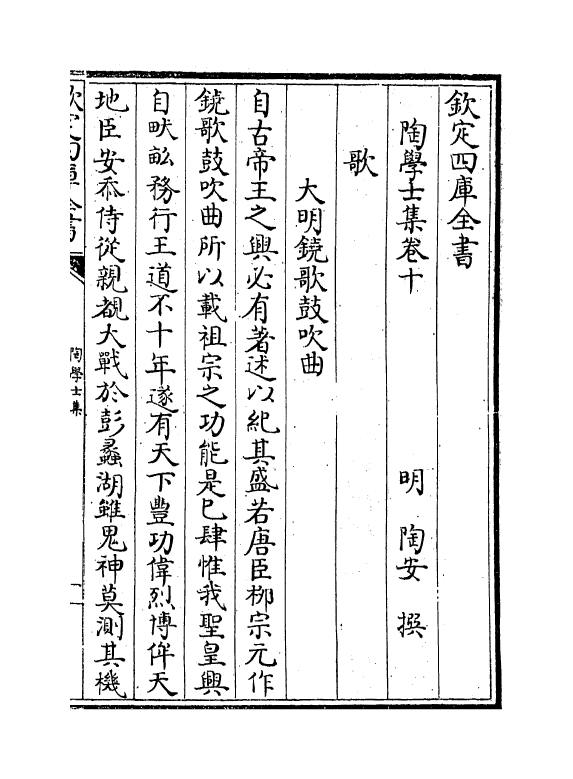 欽定四庫全書
陶學士集卷十
明 陶安 撰
歌
大明鐃歌鼓吹曲
自古帝王之興必有著述以紀其盛若唐臣柳宗元作
鐃歌鼓吹曲所以載祖宗之功能是已肆惟我聖皇興
自畎畝務行王道不十年遂有天下豐功偉烈博侔天
地臣安忝侍從親覩大戰於彭蠡湖雖鬼神莫測其機
欽定四庫全書
陶學士集
一